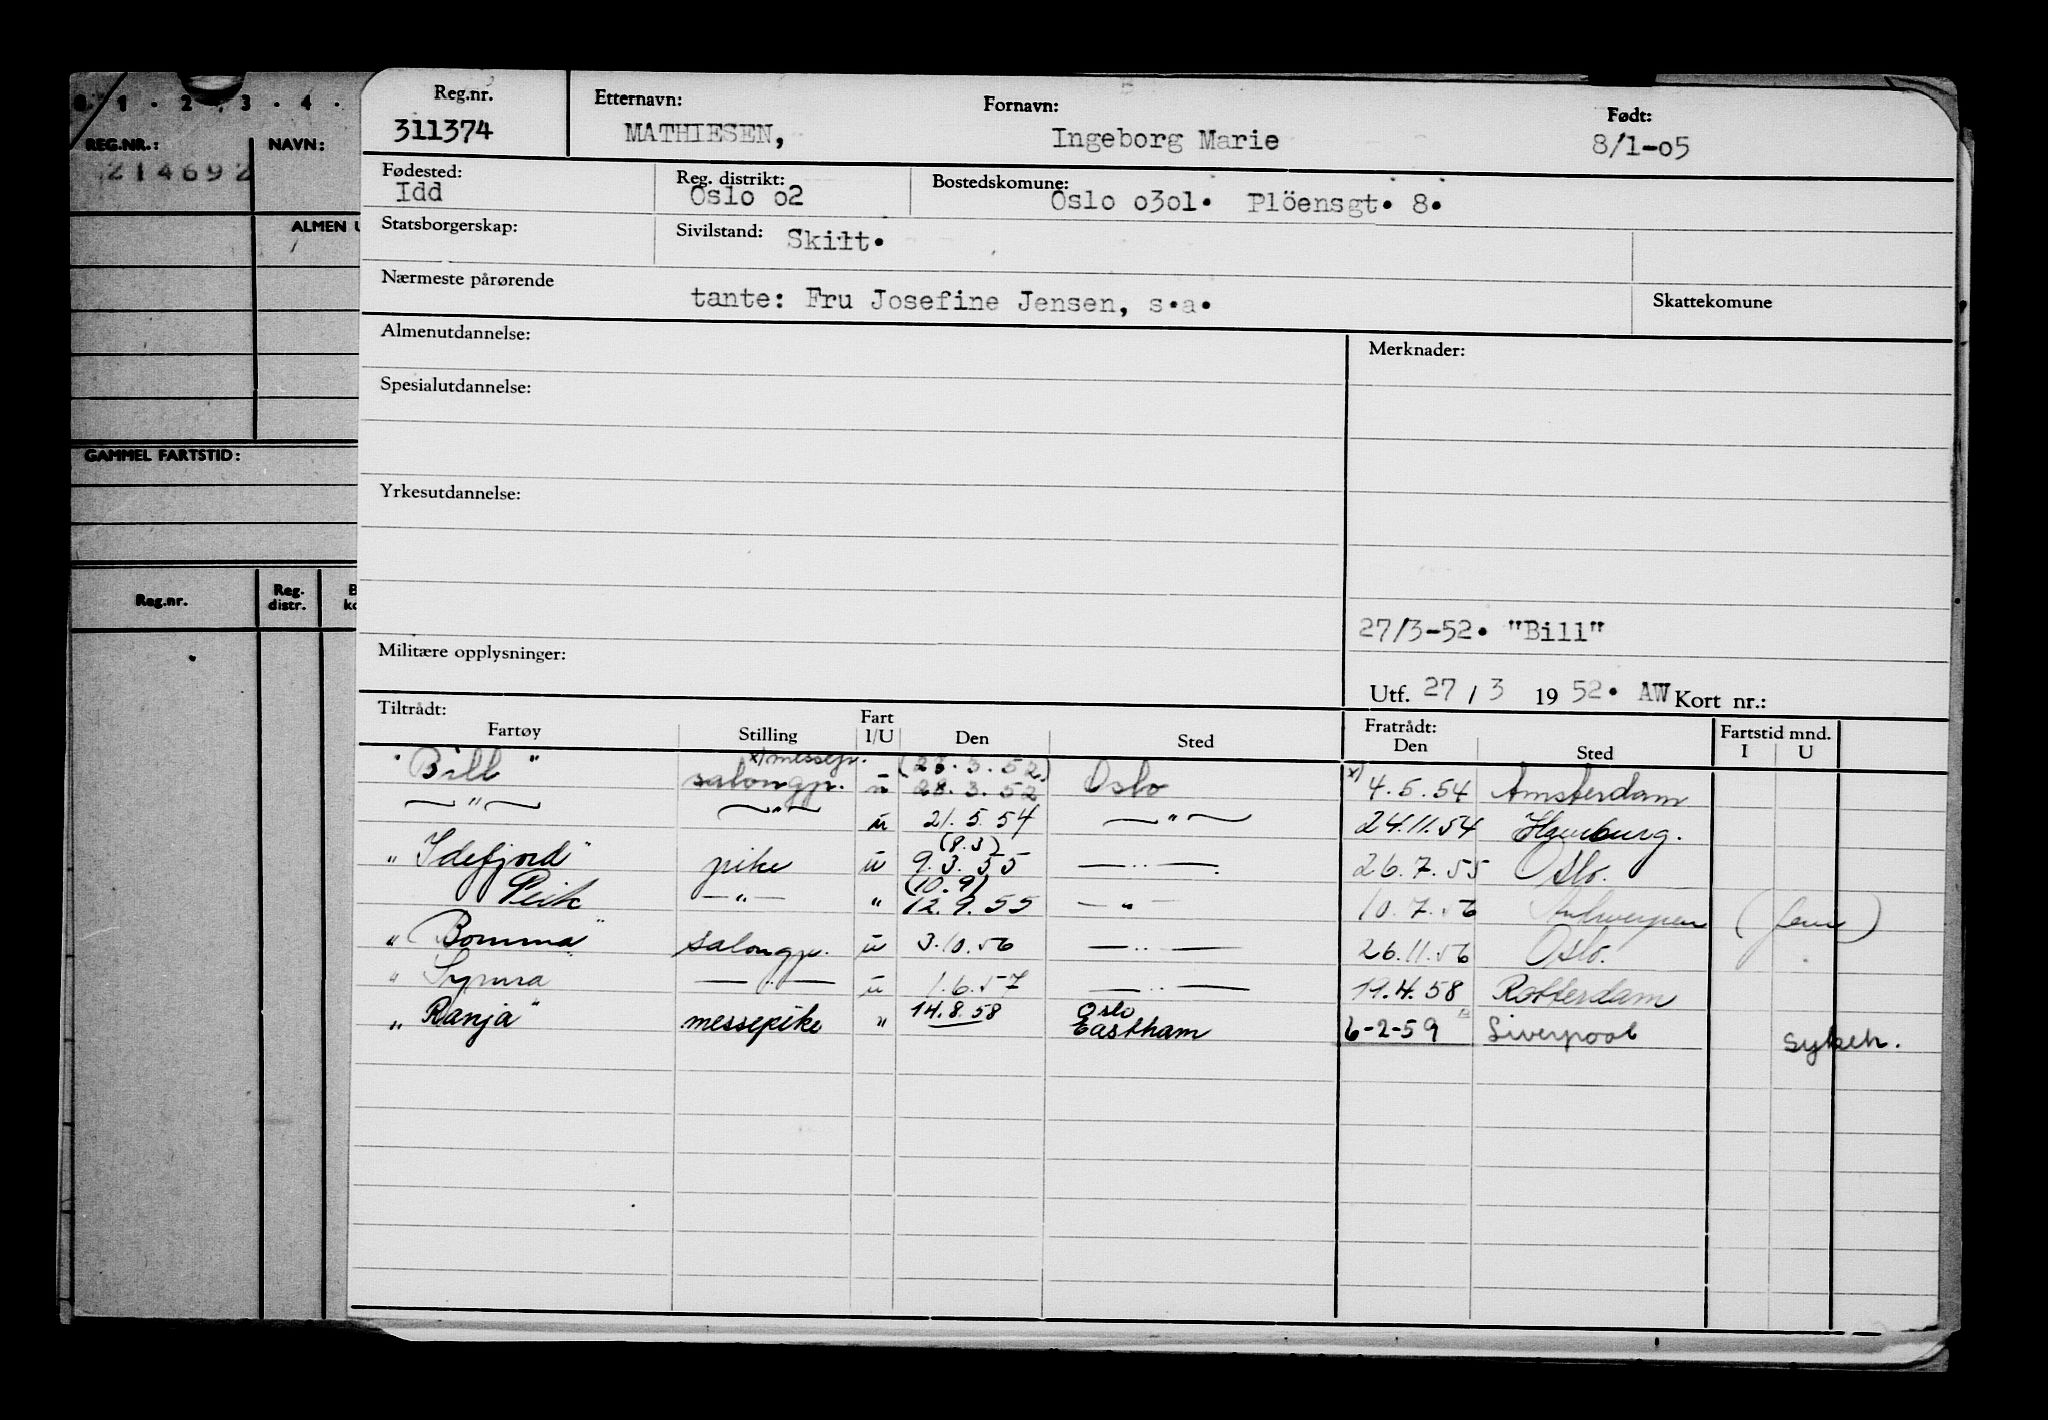 0 . 1 . 2 . 3 . 4 .
REG.NR.: NAVN:
214692
ALMEN U
GAMMEL FARTSTID:
Reg.nr. Reg. distr.
Reg.nr. Etternavn: Fornavn: Født:
311374 MATHIESEN, Ingeborg Marie 8/1-o5
Fødested: Reg. distrikt: Bostedskomune:
Idd Oslo o2 Oslo o3o1. Plöensgt. 8.
Statsborgerskap: Sivilstand: Skilt.
Nærmeste pårørende
tante: Fru Josefine Jensen, s.a. Skattekomune
Almenutdannelse: Merknader:
Spesialutdannelse:
Yrkesutdannelse:
27/3-52. "Bill"
Militære opplysninger:
Utf. 27 / 3 19 52. AW Kort nr.:
Tiltrådt: Fart Fratrådt: Fartstid mnd.
Fartøy Stilling I/U Den Sted Den Sted I U
x) messep. (28.3.52)
"Bill" salongp. u 28.3.52 Oslo x) 4.5.54 Amsterdam
— " — — " — u 21.5.54 — " — 24.11.54 Hamburg.
(8.3)
"Idefjord" pike u 9.3.55 — " — 26.7.55 Oslo.
(10.9)
Peik — " — " 12.9.55 — " — 10.7.56 Antwerpen
"Bomma" salongp. u 3.10.56 — " — 26.11.56 Oslo.
" Symra — " — u 1.6.57 — " — 19.4.58 Rotterdam
Oslo
"Ranja" messepike " 14.8.58 Eastham 6-2-59 Liverpool sykeh.